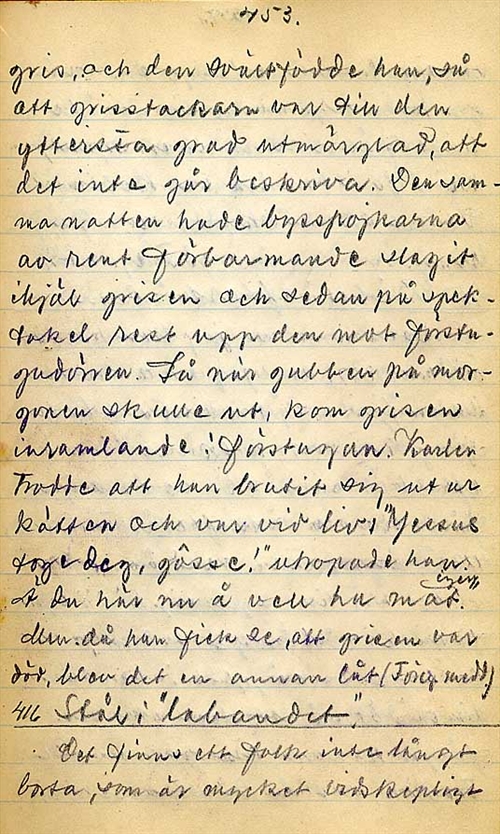 453.
gris, och den svältfödde han, så
att grisstackarn var till den
yttersta grad utmärglad, att
det inte går beskriva. Den sam-
ma natten hade bysspojkarna
av rent förbarmande slagit
ihjäl grisen och sedan på spek-
takel rest upp den mot förstu-
gudörren. Så när gubben på mor-
gonen skulle ut, kom grisen
inramlande i förstugan. Karlen
trodde att han brutit sig ut ur
kätten och var vid liv. "Jessus
toge deg, gösse!" utropade han.
Ä du här nu å vell ha mat.
Men då han fick se, att grisen var
död, blev det en annan låt (Föreg. medd)
416 Stål i "labandet".
Det finns ett folk inte långt
borta, som är mycket vidskepligt